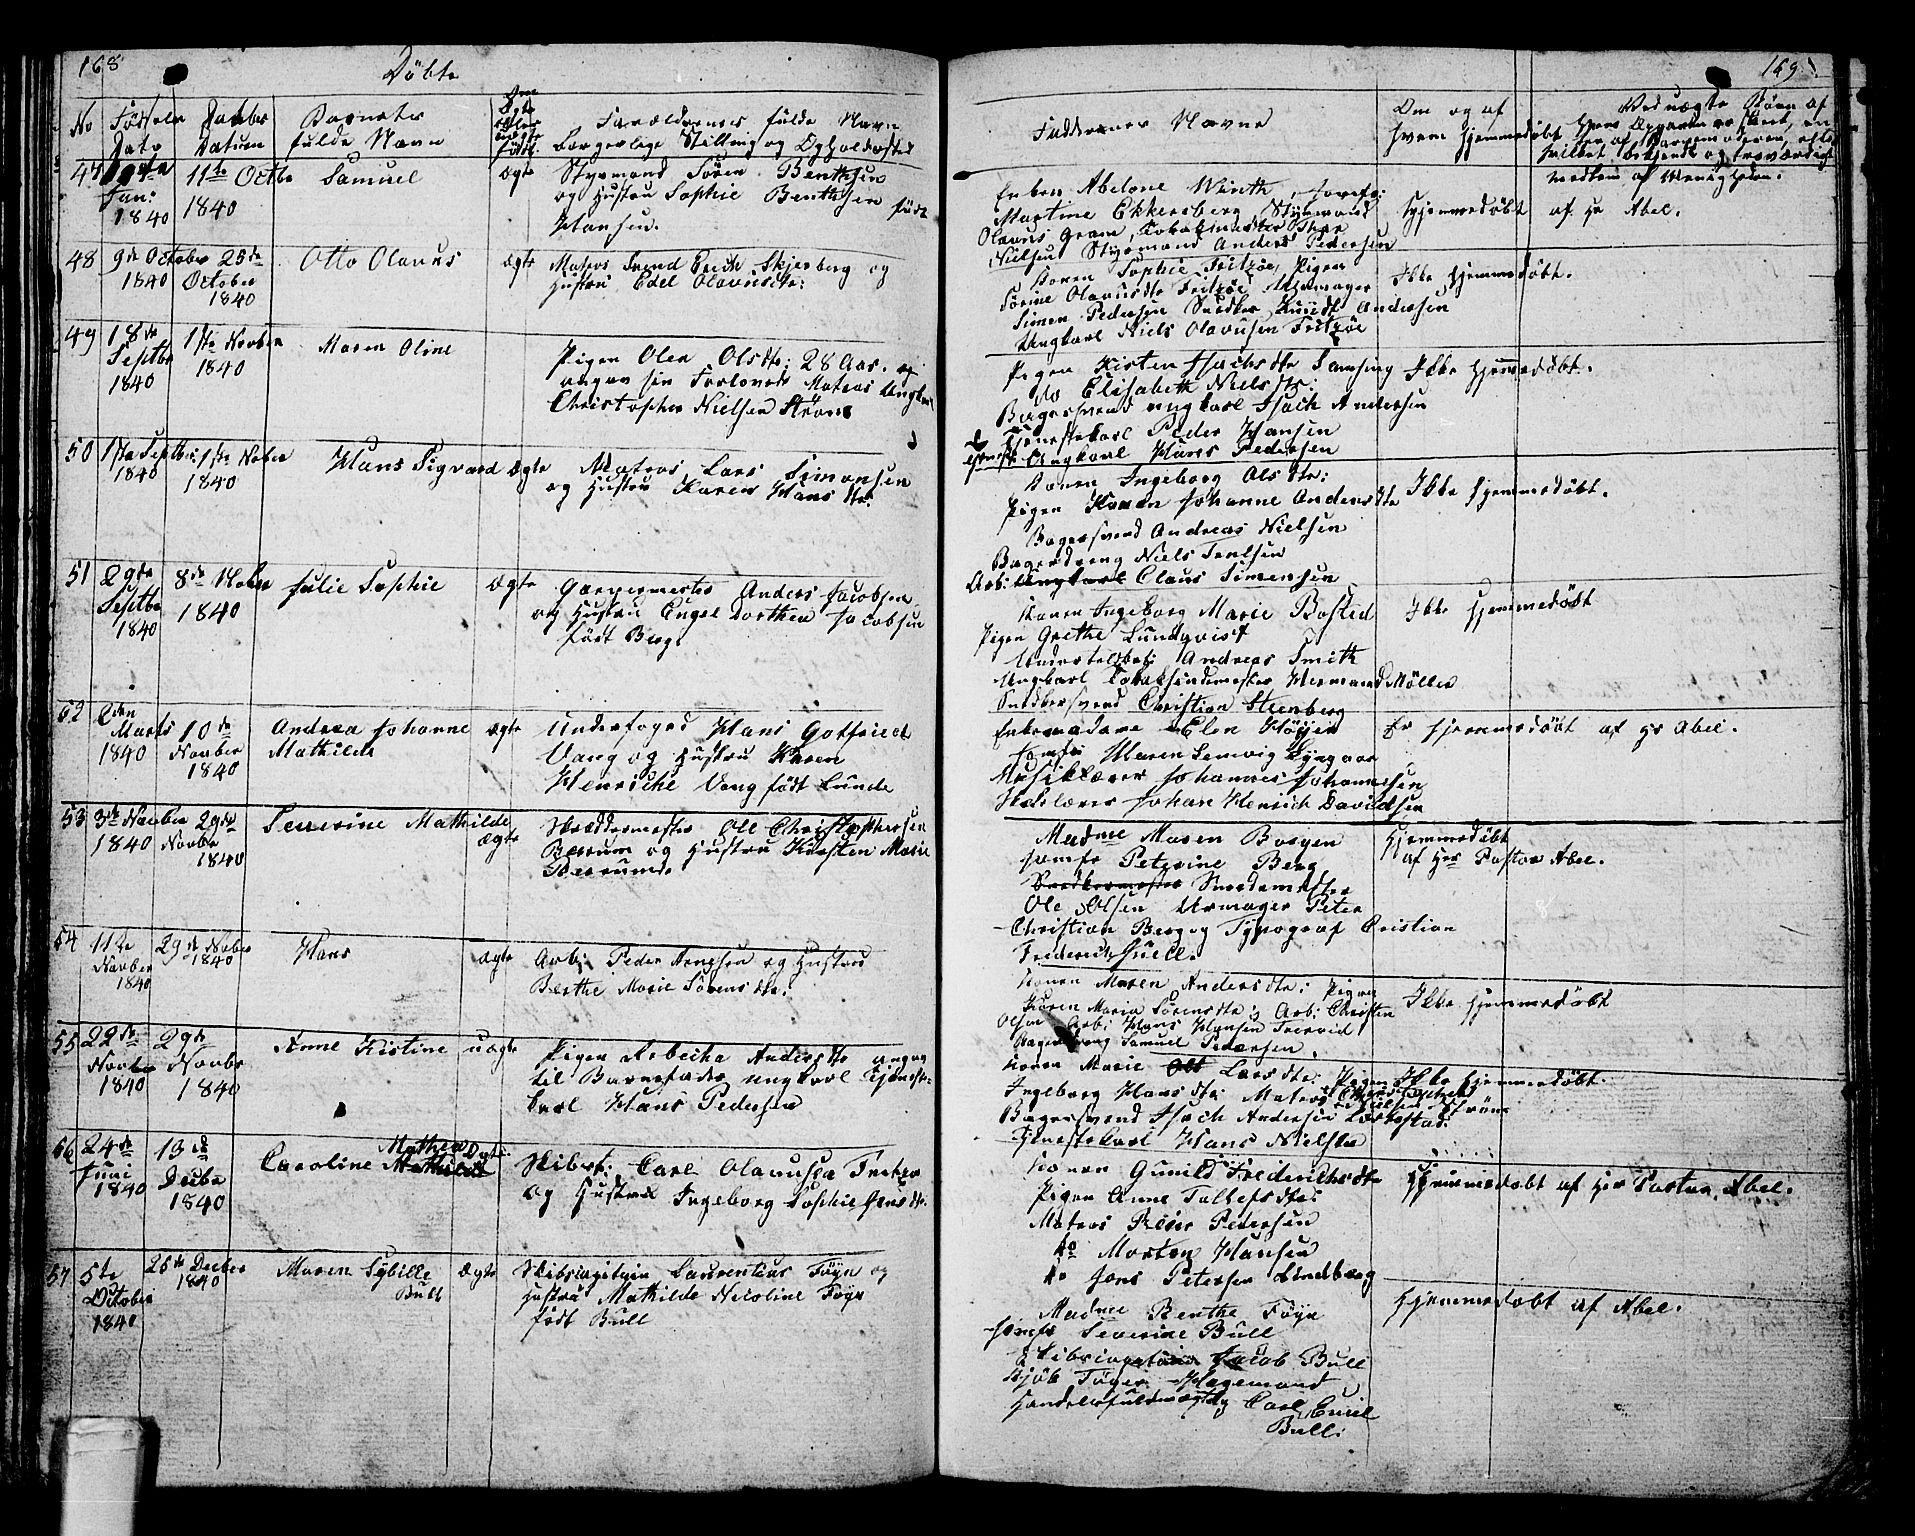 168
Döbte
No
Födsels
Dato
Daabs
Datum
Barnets
fulde Navn
Om
Ægte
eller
uægte
født.
Forældrenes fulde Navn
borgerlige Stilling og Opholdssted
47
Jan:
1840
11te Octbr
1840
Samuel
ægte
Styrmand Sören Benthsen
og Hustru Sophie Benthsen født
Hansen.
48
9de October
1840
25de
October
1840
Otto Olavus
ægte
Matros Svend Erich Skjerberg og
Hustru Edel Olavusdtr:
49
18de
Septbr
1840
1ste Novber
1840
Maren Oline
Pigen Olea Olsdtr: 28 Aar. og
angav sin Forlovede Matros Ungkarl
Christopher Nielsen Ström
50
1ste Septbr:
1840
1ste Nober
1840
Hans Sigvard
ægte
Matros Lars Simonsen
og Hustru Karen Hansdtr:
51
29de
Septbr
1840
8de Nober
1840
Julie Sophie
ægte
Garvermester Anders Jacobsen
og Hustru Engel Dorthea Jacobsen
født Berg.
52
2den
Marts
1840
10de
Novber
1840
Andrea Johanne
Mathilde
ægte
Underfoged Hans Gotfried
Vang og Hustru Karen
Henriche Vang født Lunde
53
3de Novber
1840
29de
Novbr
1840
Severine Mathilde
ægte
Skræddermester Ole Christophersen
Berrum og Hustru Kirsten Marie
Berrum.
54
11te
Novber
1840
29de Novber
1840
Hans
ægte
Arb: Peder Arnesen og Hustru
Berthe Marie Sörensdtr:
55
22de
Novbr
1840
29de
Novbr
1840
Anne Kistine
uægte
Pigen Rebecka Andersdtr angav
til Barnefader ungkarl Tjeneste-
karl Hans Pedersen
56
24de
Juni
1840
13de
Decbr
1840
Mathea
Caroline
ægte
Skibst: Carl Olavusen Fritzøe
og Hustru Ingeborg Sophie Jensdtr.
57
5te
October
1840
25de Decber
1840
Maren Sybille
Bull
ægte
Skibscapitain Laurentius Föyn og
Hustru Mathilde Nicoline Föyn
født Bull
169
Faddernes Navne
Om og af
hvem hjemmedøbt
Ved uægte Børn af
medlem af Menigheden.
Enken Abelone Winth, Jomfr:
Martine Ekkersberg Styrmand
Olavus Gram, Tobaksmester
Nielsen Styrmand Anders Pedersen
Hjemmedøbt af Hr Abel.
Konen Sophie Fritzøe, Pigen
Sörine Olavusdtr Fritzøe,
Simen Pedersen Snedker Knudt Andersen
Ungkarl Niels Olavusen Fritzöe
Ikke hjemmedøbt.
Pigen Kirsten Isachsdtr Samsing
do Elisabeth Nielsdtr:
Bagersvend ungkarl Isach Andersen
Tjenestekarl Peder Hansen
Ungkarl Hans Pedersen
Ikke hjemmedøbt.
Konen Ingeborg Olsdtr:
Pigen Karen Johanne Andersdtr
Bagersvend Andreas Nielsen
Bagerdreng Niels
Arb: Ungkarl Claus Simensen
Ikke hjemmedøbt.
Konen Ingeborg Marie Bosted
Pigen Grethe Lundqvist
Andreas Smith
Ungkarl Tobaksspindemester Hermand Møller
Snedkersvend Christian Steenberg
Ikke hjemmedøbt
Enkemadame Elen Höyer
Jomfr Maren Lemvig Lyngaas
Musiklærer Johannes Johannesen
Skolelærer Johan Henrich Davidsen
Er hjemmedøbt af Hr Abel.
Madme Maren Borgen
Jomfr Peterine Berg
Snedkermester Smedemester
Ole Olsen Urmager Peter
Christian Berg og Typograf Cristian
Frederich Juell.
Hjemmedøbt
af Herr Pastor Abel.
Konen Maren Andersdtr: Pigen
Karen Maria Sörensdtr; Arb: Christen
Olsen Arb: Hans Hansen
Samuel Pedersen.
Ikke hjemmedøbt
Konen Marie Larsdtr: Pigen
Ingeborg Hansdtr: Matros Christopher
Nielsen Ström
Bagersvend Isach Andersen
Tjenestekarl Hans Nielsen
Ikke hjemmedøbt.
Konen Gunild Frederichsdtr
Pigen Anne Tollefsdtr
Matros Reier Pedersen
do Morten Hansen
do Jens Petersen Lindberg
Hjemmedøbt af Herr Pastor Abel.
Madme Berthe Föyn
Jomfr Severine Bull
Skibscapitain Jacob Bull
Hagemand
Handelsfuldmægtig Carl Emil
Bull.
Hjemmedøbt af Abel.